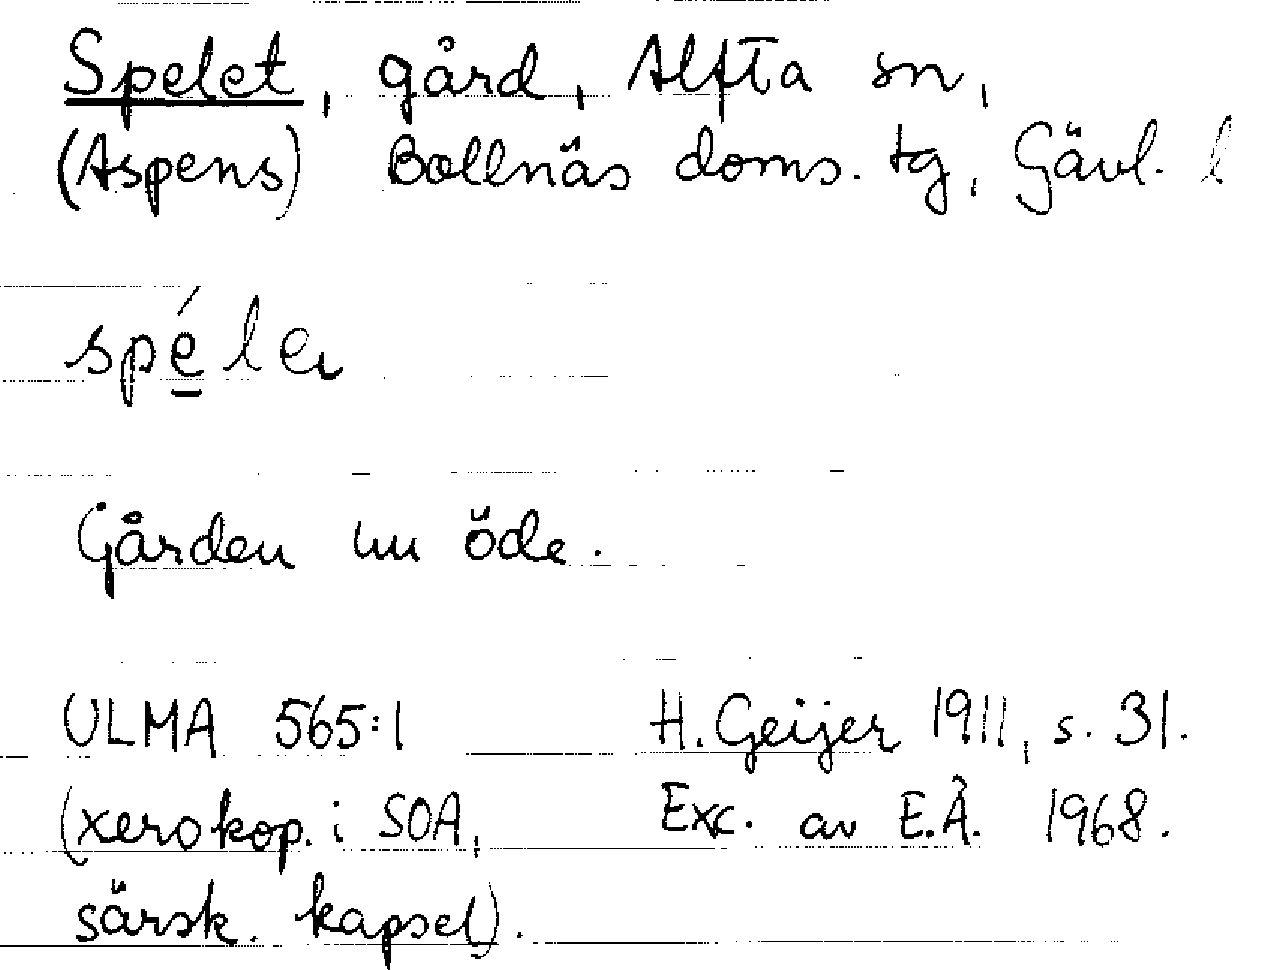 Spelet, gård, Alfta sn,
(Aspens) Bollnäs doms. tg, Gävl. l
Gården nu öde.
ULMA 565:1 H. Geijer 1911, s. 31.
(xerokop. i SOA, Exc. av E.Å. 1968.
särsk. kapsel).